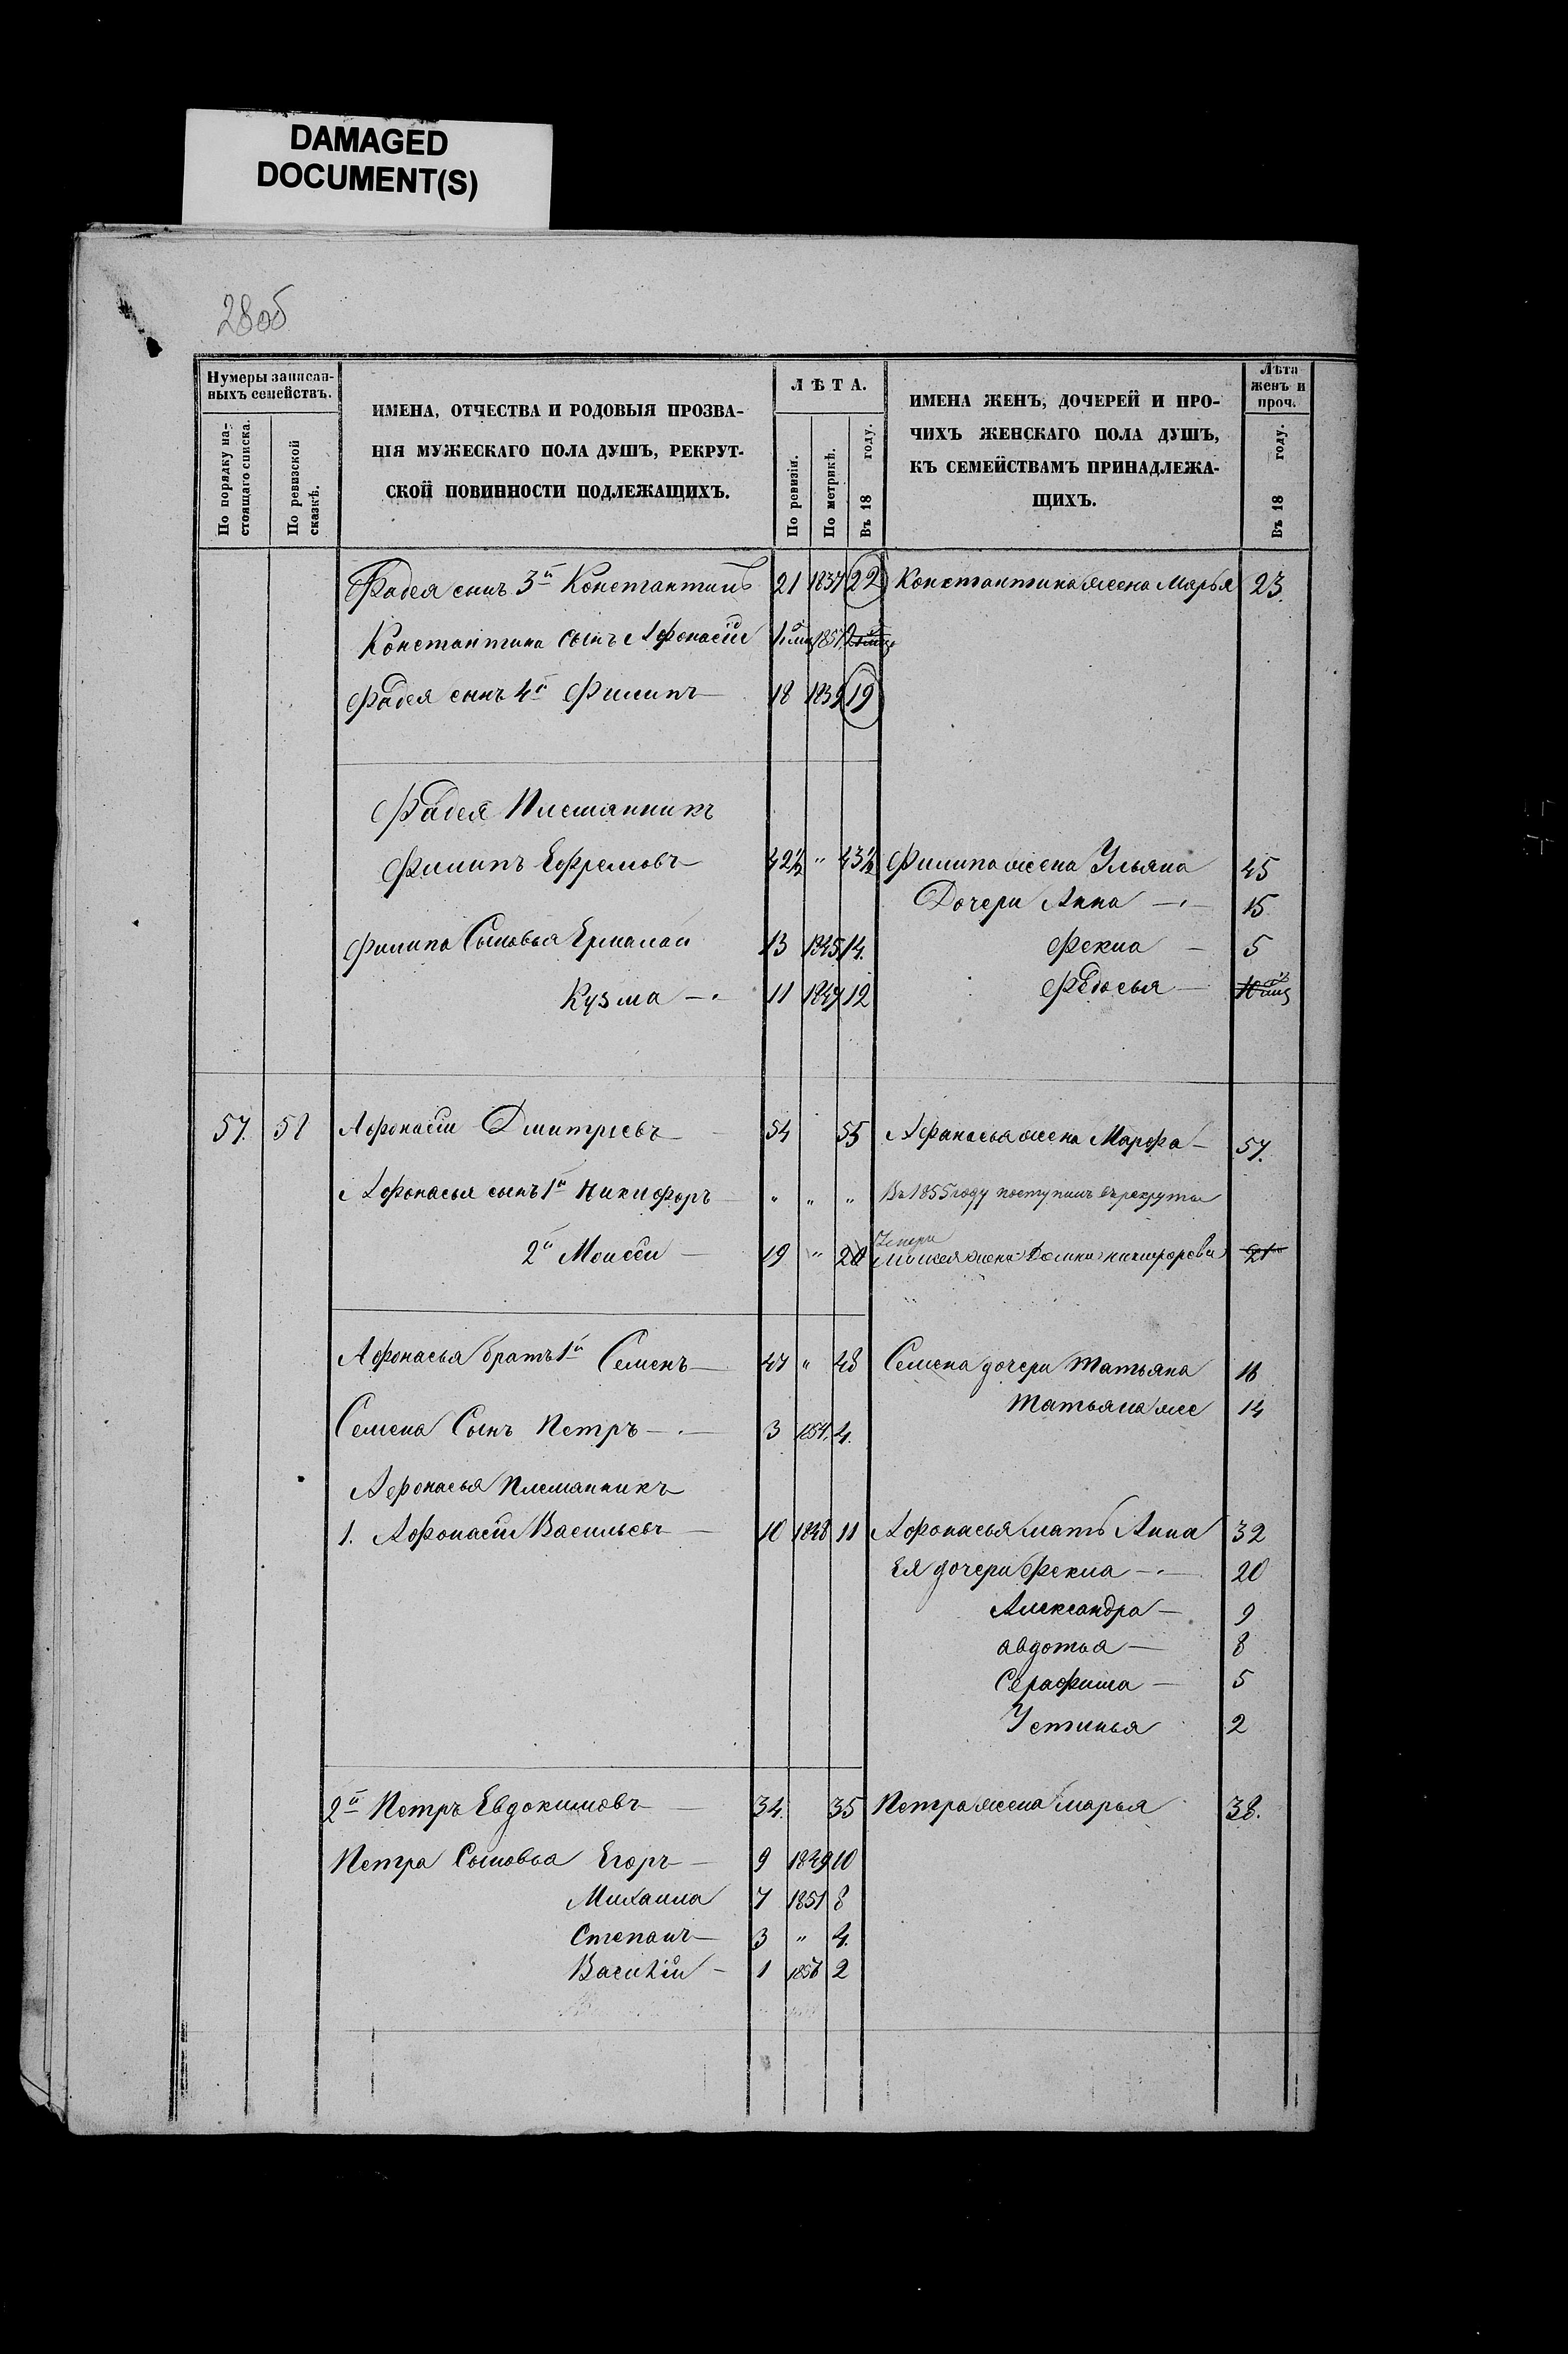 DAMAGED
DOCUMENT(S)
28об
Нумеры записан-
ныхъ семействъ.
По порядку на-
стоящаго списка.
По ревизской
сказкѣ.
ИМЕНА, ОТЧЕСТВА И РОДОВЫЯ ПРОЗВА-
НІЯ МУЖЕСКАГО ПОЛА ДУШЪ, РЕКРУТ-
СКОЙ ПОВИННОСТИ ПОДЛЕЖАЩИХЪ.
ЛѢТА.
По ревизіи.
По метрикѣ.
Въ 18 году.
ИМЕНА ЖЕНЪ, ДОЧЕРЕЙ И ПРО-
ЧИХЪ ЖЕНСКАГО ПОЛА ДУШЪ,
КЪ СЕМЕЙСТВАМЪ ПРИНАДЛЕЖА-
ЩИХЪ.
Лѣта
женъ и
проч.
Въ 18 году.
Фадея сынъ 3й Константинъ 21 1837 22 Константина жена Марья 23.
Константина сынъ Афонасій 1857
Фадея сынъ 4й Филипъ 18 1839 19
Фадея Племянникъ
Филипъ Ефремовъ 42½ " 43½ Филипа жена Ульяна 45
Дочери Анна 15
Филипа Сыновья Ермалай 13 1845 14. Фекла 5
Кузма 11 1847 12 Федосья
57. 51 Афонасій Дмитріевъ 54 55 Афанасья жена Марфа 57.
Афонасья сынъ 1й Никифоръ " " " Въ 1855 году поступилъ въ рекруты
2й Моисей 19 " 20 Моисея жена Домна никифорова 21
Афонасья братъ 1й Семенъ 47 " 48 Семена дочери Татьяна 16
Татьяна же 14
Семена Сынъ Петръ 3 1854. 4.
Афонасья Племянникъ
1. Афонасій Васильевъ 10 1848 11 Афонасья мать Анна 32
Ея дочери Фекла 20
Александра 9
авдотья 8
Серафима 5
Устинья 2
2й Петръ Евдокимовъ 34. 35 Петра жена марья 38.
Петра Сыновья Егоръ 9 1849 10
Михаила 7 1851 8
Степанъ 3 " 4.
Василій 1 1856 2